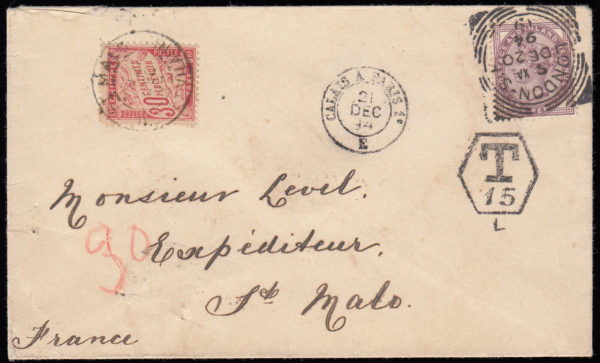 30
CENTIMES
PERCEVOIR
CALAIS A PARIS 1º
21
DEC
94
E
LONDON
DE 20
94
T
15
L
Monsieur Level.
30
Expéditeur.
St Malo.
France